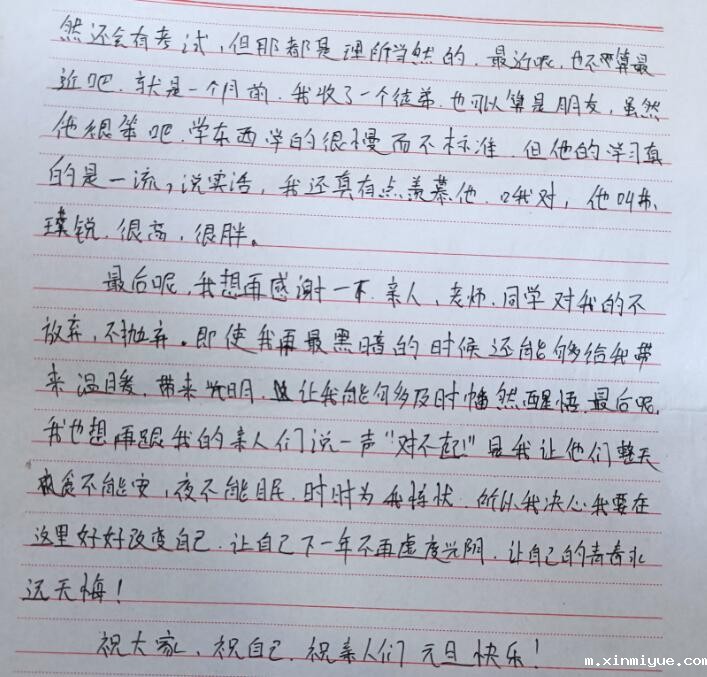 然还会有考试，但那都是理所当然的．最近呢，也不算最
近吧．就是一个月前．我收了一个徒弟．也可以算是朋友，虽然
他很笨吧．学东西学的很慢而不标准．但他的学习真
的是一流，说实话，我还真有点羡慕他．哦对，他叫
璞锐．很高．很胖。
最后呢，我想再感谢一下．亲人，老师．同学对我的不
放弃，不抛弃。即使我再最黑暗的时候还能够给我带
来温暖．带来光明．让我能够多及时幡然醒悟．最后呢．
我也想再跟我的亲人们说一声“对不起！”是我让他们整天
食不能安，夜不能眠．时时为我担忧．所以我决心我要在
这里好好改变自己．让自己下一年不再虚度光阴．让自己的青春永
远无悔！
祝大家．祝自己．祝亲人们 元旦快乐！
m.xinmiyue.com